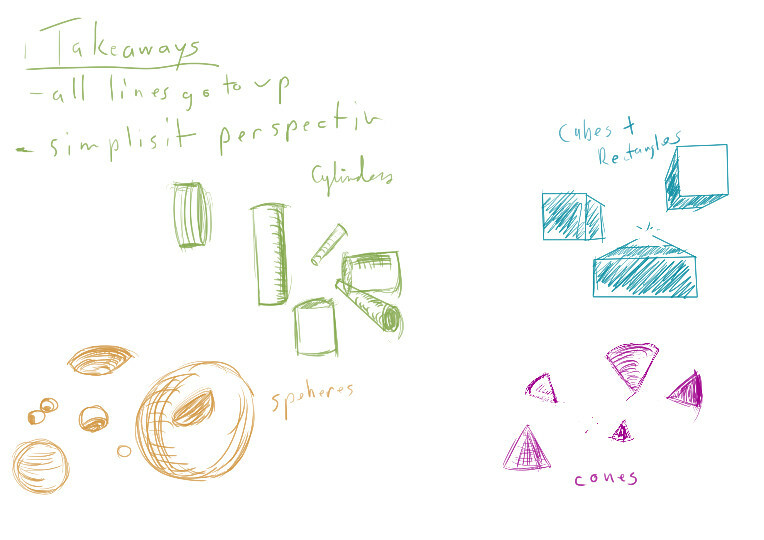 Takeaways
- all lines go to vp
- simplisit perspectiv
Cylinders
Cubes +
Rectangles
spheres
cones